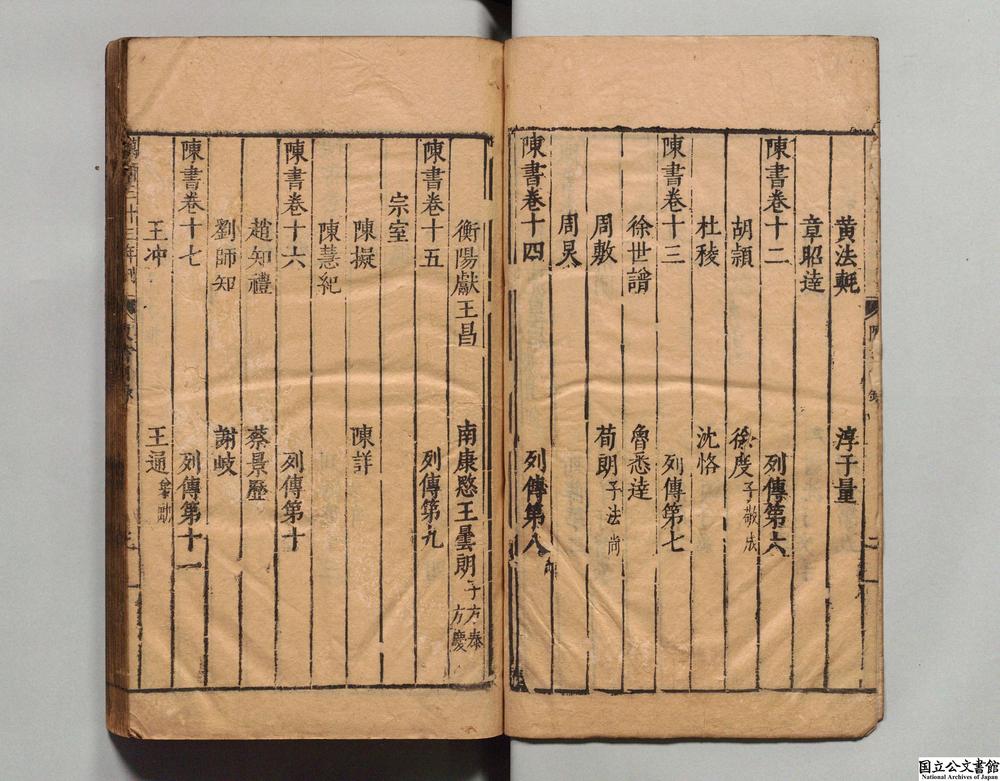 黃法𣰰 淳于量
章昭達
陳書卷十二 列傳第六
胡穎 徐度子敬成
杜稜 沈恪
陳書卷十三 列傳第七
徐世譜 魯悉達
周敷 荀朗子法尚
周炅
陳書卷十四 列傳第八
衡陽獻王昌 南康愍王曇朗子方泰 方慶
陳書卷十五 列傳第九
宗室
陳擬 陳詳
陳慧紀
陳書卷十六 列傳第十
趙知禮 蔡景歷
劉師知 謝岐
陳書卷十七 列傳第十一
王冲 王通弟勱
国立公文書館
National Archives of Japan